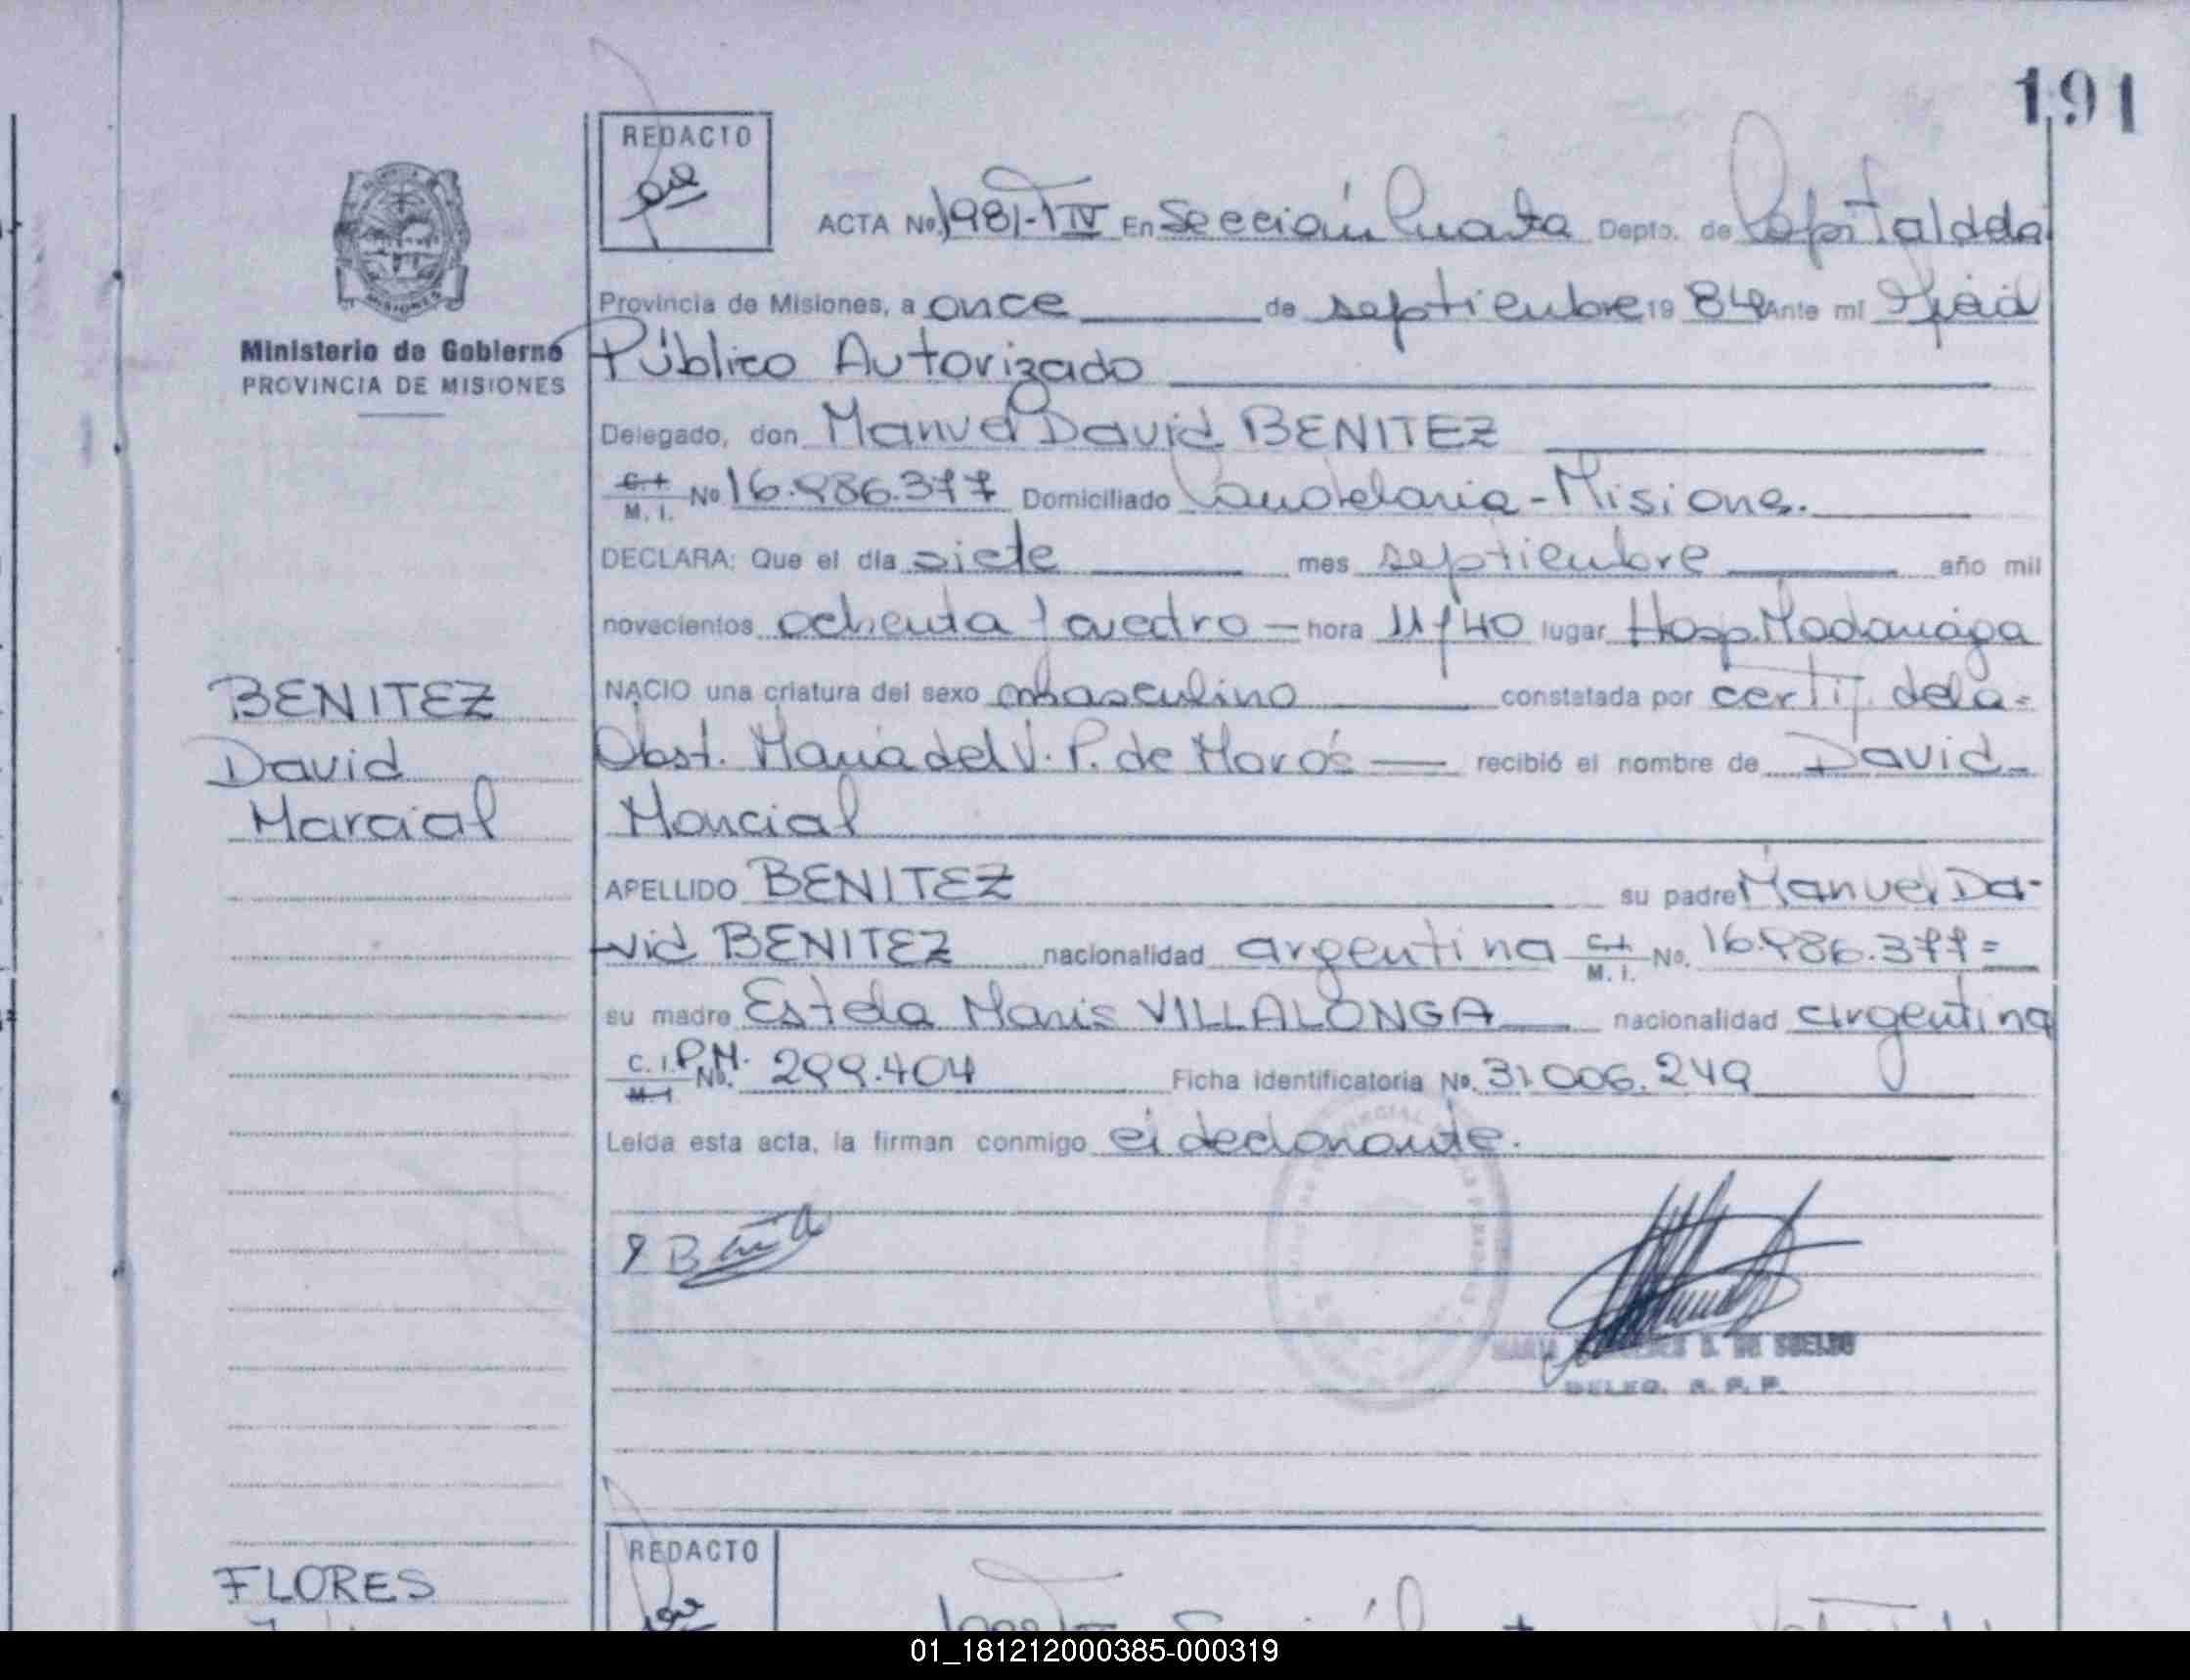 191
REDACTO
ACTA No. 1981-T IV En Sección Cuarta Depto. de Capital de la
Provincia de Misiones, a once de septiembre 19 84 Ante mi Oficial
Público Autorizado
Ministerio de Gobierno
PROVINCIA DE MISIONES
Delegado, don Manuel David BENITEZ
C.I. M. I. No 16.986.377 Domiciliado Candelaria - Misiones.
DECLARA: Que el día siete mes septiembre año mil
novecientos ochenta y cuatro - hora 11/40 lugar Hosp. Madariaga
BENITEZ
David
Marcial
NACIO una criatura del sexo masculino constatada por certif. de la=
Obst. María del V. P. de recibió el nombre de David
Marcial
APELLIDO BENITEZ su padre Manuel Da-
vid BENITEZ nacionalidad argentina C.I. M. I. No. 16.986.377=
su madre Estela Maris VILLALONGA nacionalidad argentina
C. I. P.M. M.I No. 299.404 Ficha identificatoria No. 31.006.249
Leída esta acta, la firman conmigo el declarante.
DELEG. R. P. P.
REDACTO
FLORES
01_181212000385-000319